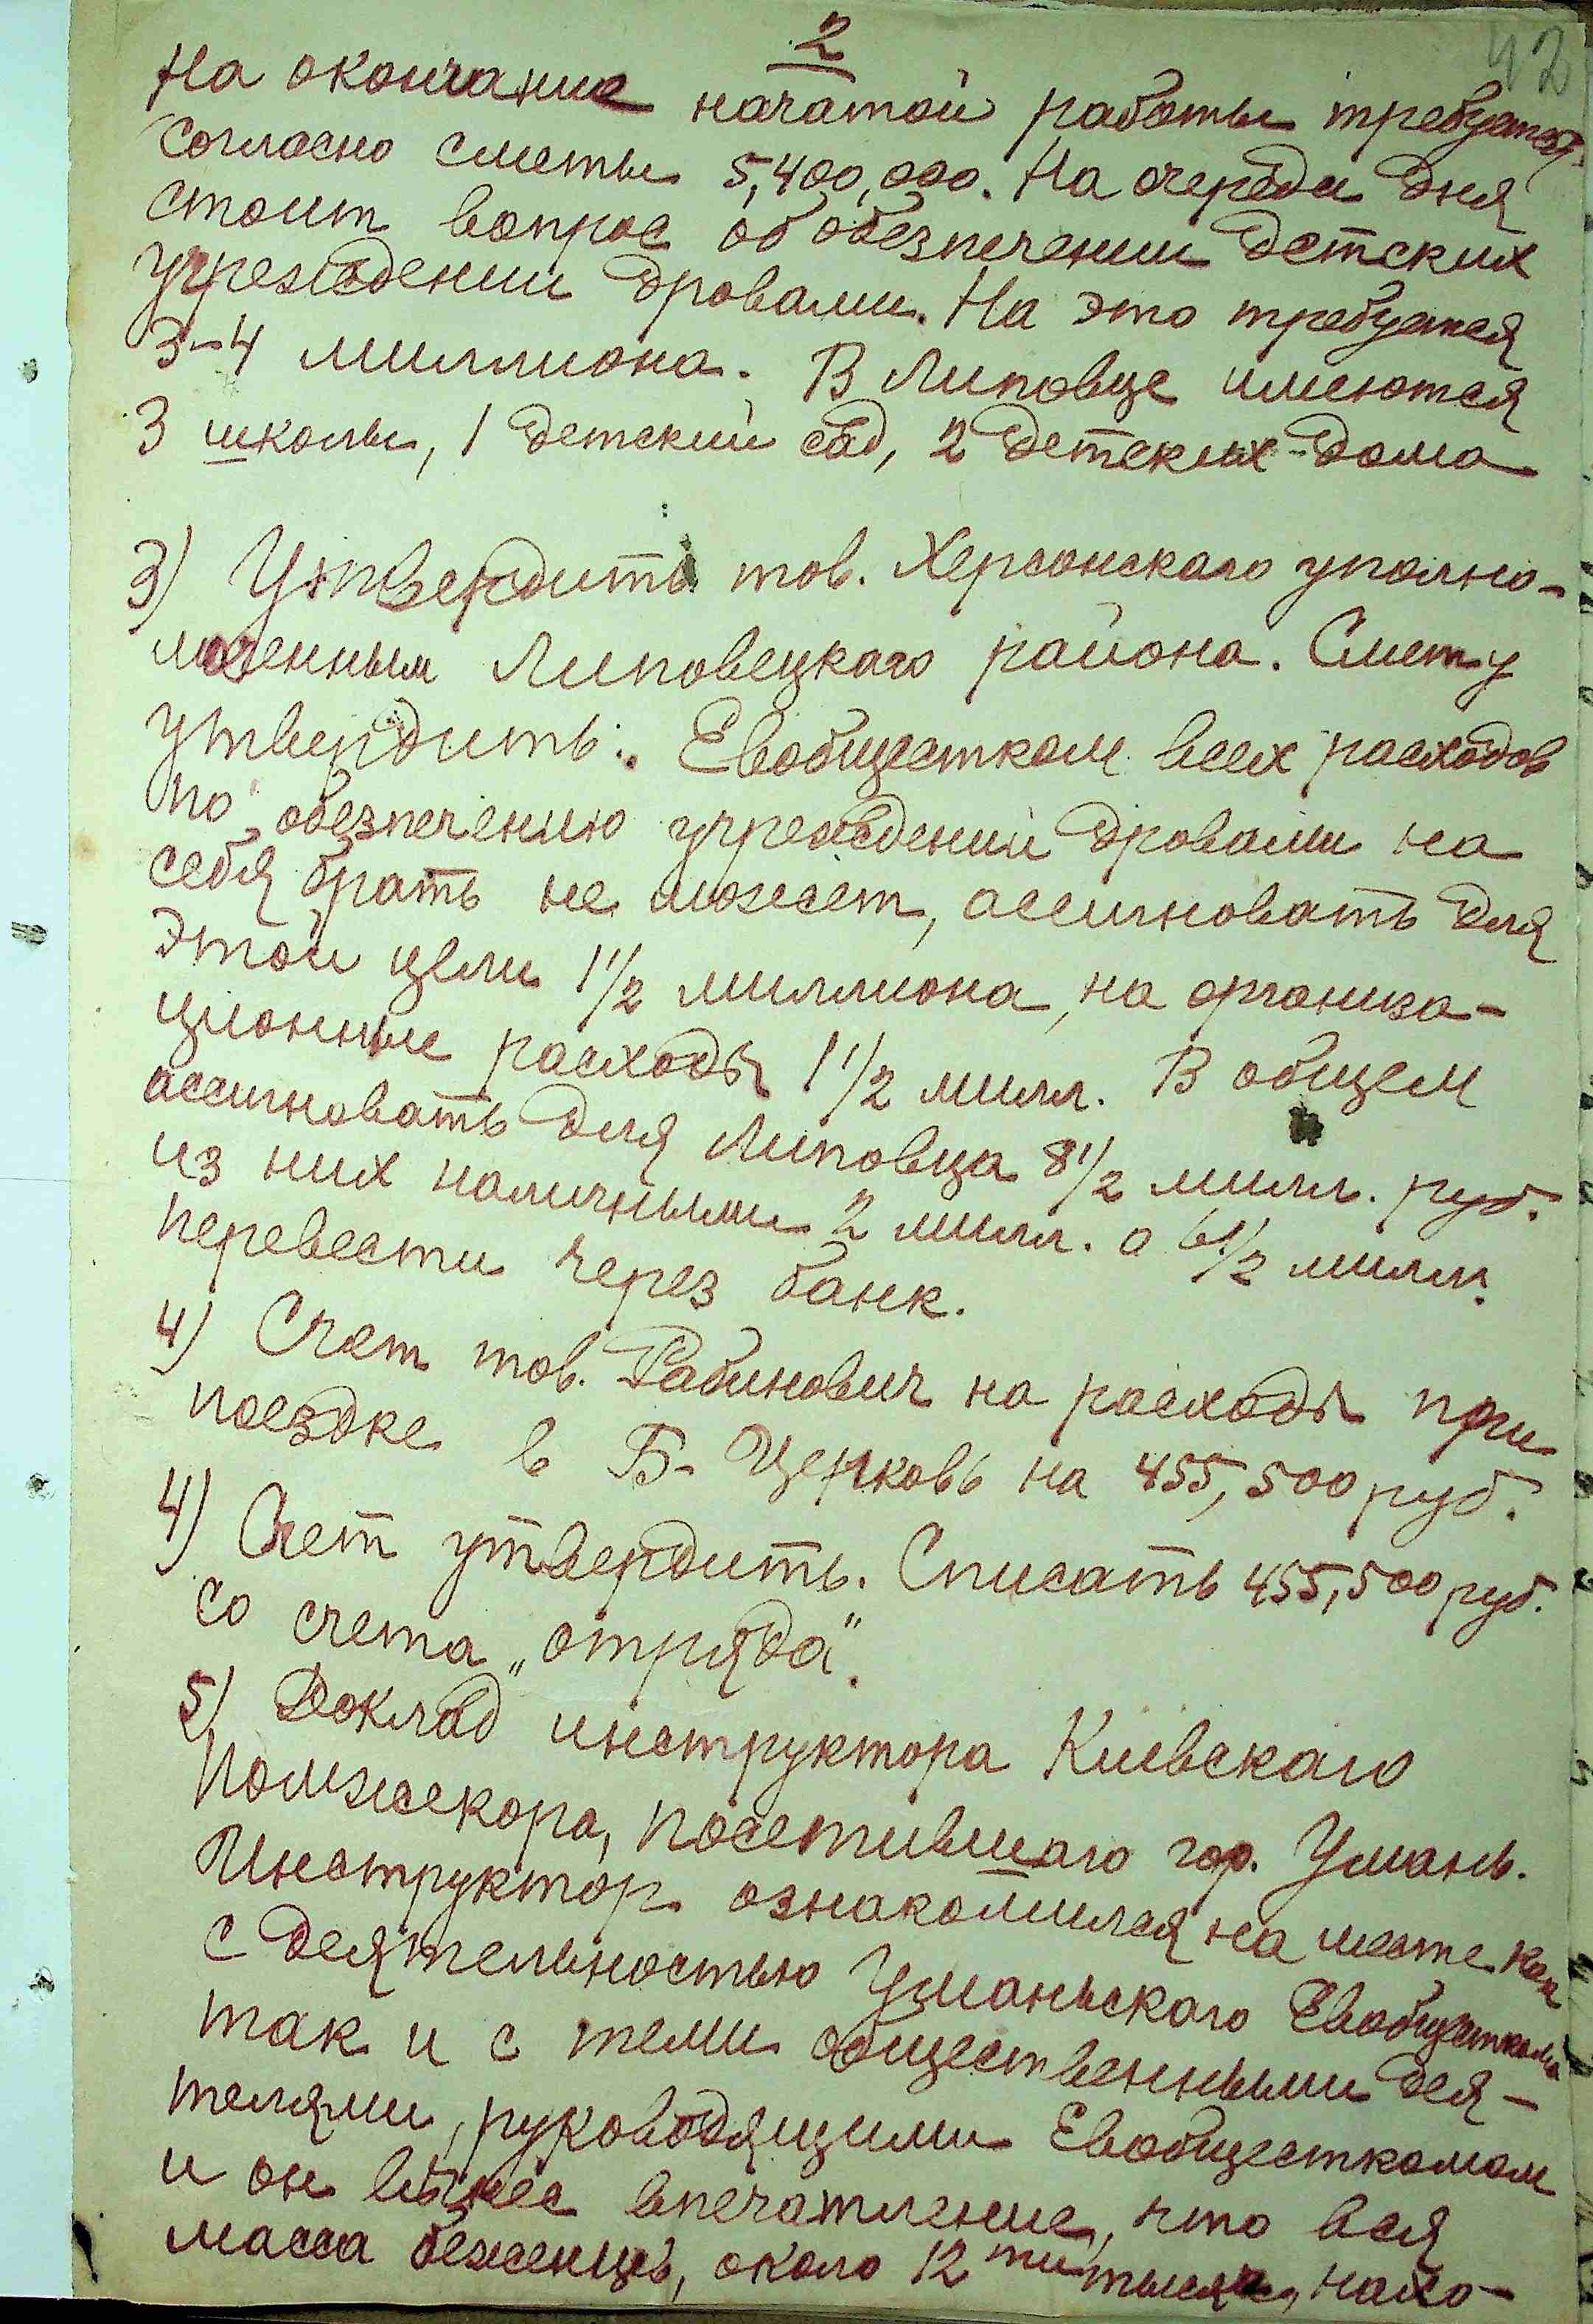 2
42
На окончание начатой работы требуется
согласно сметы 5,400,000. На очереди дня
стоит вопрос об обезпечении детских
учреждений дровами. На это требуется
3-4 миллиона. В Липовце имеются
3 школы, 1 детский сад, 2 детских дома
3) Утвердить тов. Херсонскаго уполно-
моченным Липовецкаго района. Смету
утвердить. Евобщестком всех расходов
по обезпечению учреждений дровами на
себя брать не может, ассигновать для
этой цели 1 1/2 миллиона, на организа-
ционные расходы 1 1/2 милл. В общем
ассигновать для Липовца 8 1/2 милл. руб.
из них наличными 2 милл. а 6 1/2 милл.
перевести через банк.
4) Счет тов. Рабинович на расходы при
поездке в Б-Церковь на 455,500 руб.
4) Счет утвердить. Списать 455,500 руб.
со счета „отряда".
5) Доклад инструктора Киевскаго
Помжекора, посетившаго гор. Умань.
Инструктор ознакомился на месте как
с деятельностью Уманьскаго Евобщесткома
так и с теми общественными дея-
телями, руководящими Евобщесткомом
и он вынес впечатление, что вся
масса беженцев, около 12ти тысяч, нахо-